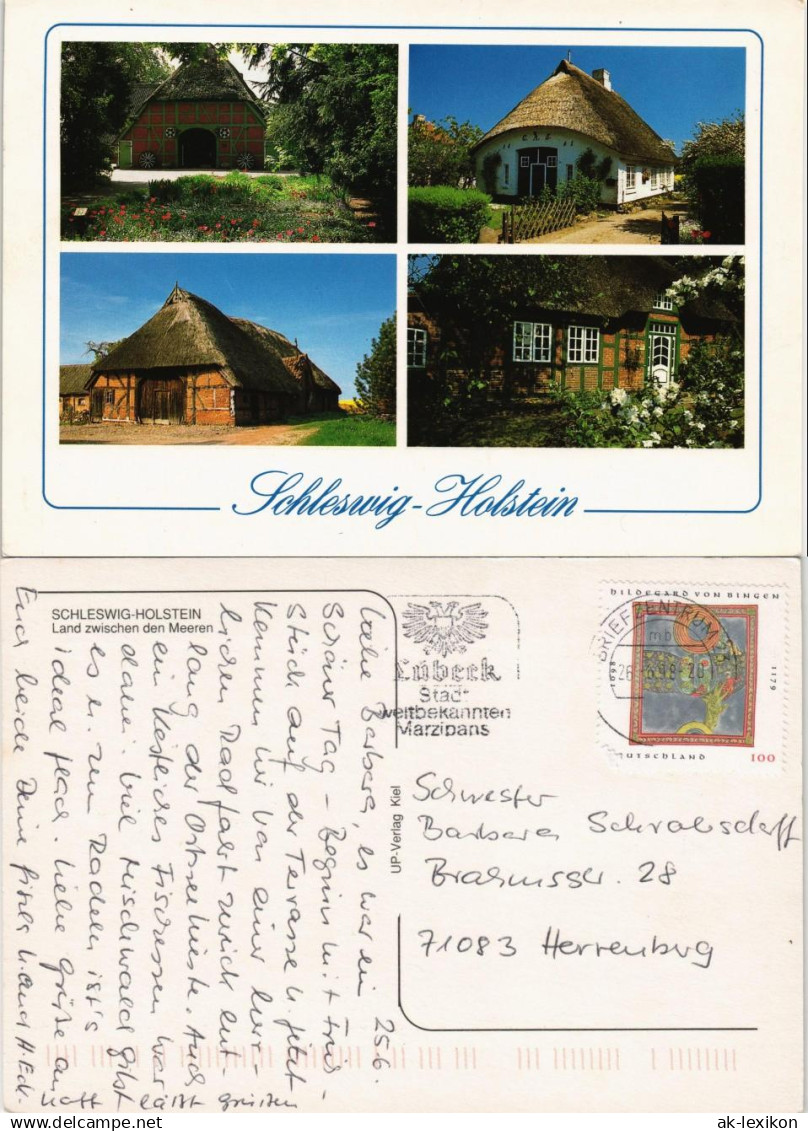 Schleswig-Holstein
SCHLESWIG-HOLSTEIN
Land zwischen den Meeren
25.6.
Liebe Barbara, es war ein
schöner Tag - Beginn mit Früh-
stück auf der Terrasse u. jetzt
kommen wir von einer herr-
lichen Radfahrt zurück ent-
lang der Ostseeküste. Auch
ein köstliches Fischessen war
dabei. Viel Mischwald gibt
es u. zum Radeln ist's
ideal flach. Liebe Grüße an
Euch beide Deine
H. Eck.
läßt grüßen
UP-Verlag Kiel
Lübeck
Stadt
weltbekannten
Marzipans
BRIEFZENTRUM
mb
26.-6.98-20
HILDEGARD VON BINGEN
1098
1179
DEUTSCHLAND 100
Schwester
Barbara
Brahmsstr. 28
71083 Herrenberg
ak-lexikon.com